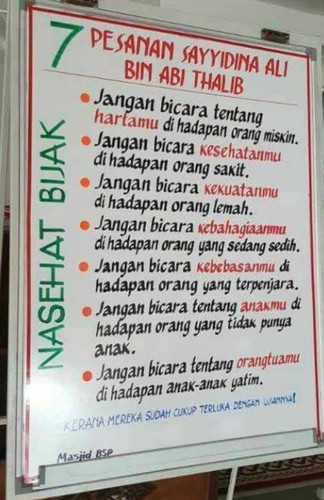 7 PESANAN SAYYIDINA ALI
BIN ABI THALIB
NASEHAT BIJAK
Jangan bicara tentang
hartamu di hadapan orang miskin.
Jangan bicara kesehatanmu
di hadapan orang sakit.
Jangan bicara kekuatanmu
di hadapan orang lemah.
Jangan bicara kebahagiaanmu
di hadapan orang yang sedang sedih.
Jangan bicara kebebasanmu di
hadapan orang yang terpenjara.
Jangan bicara tentang anakmu di
hadapan orang yang tidak punya
anak.
Jangan bicara tentang orangtuamu
di hadapan anak-anak yatim.
KERANA MEREKA SUDAH CUKUP TERLUKA DENGAN UJIANNYA!
Masjid BSP